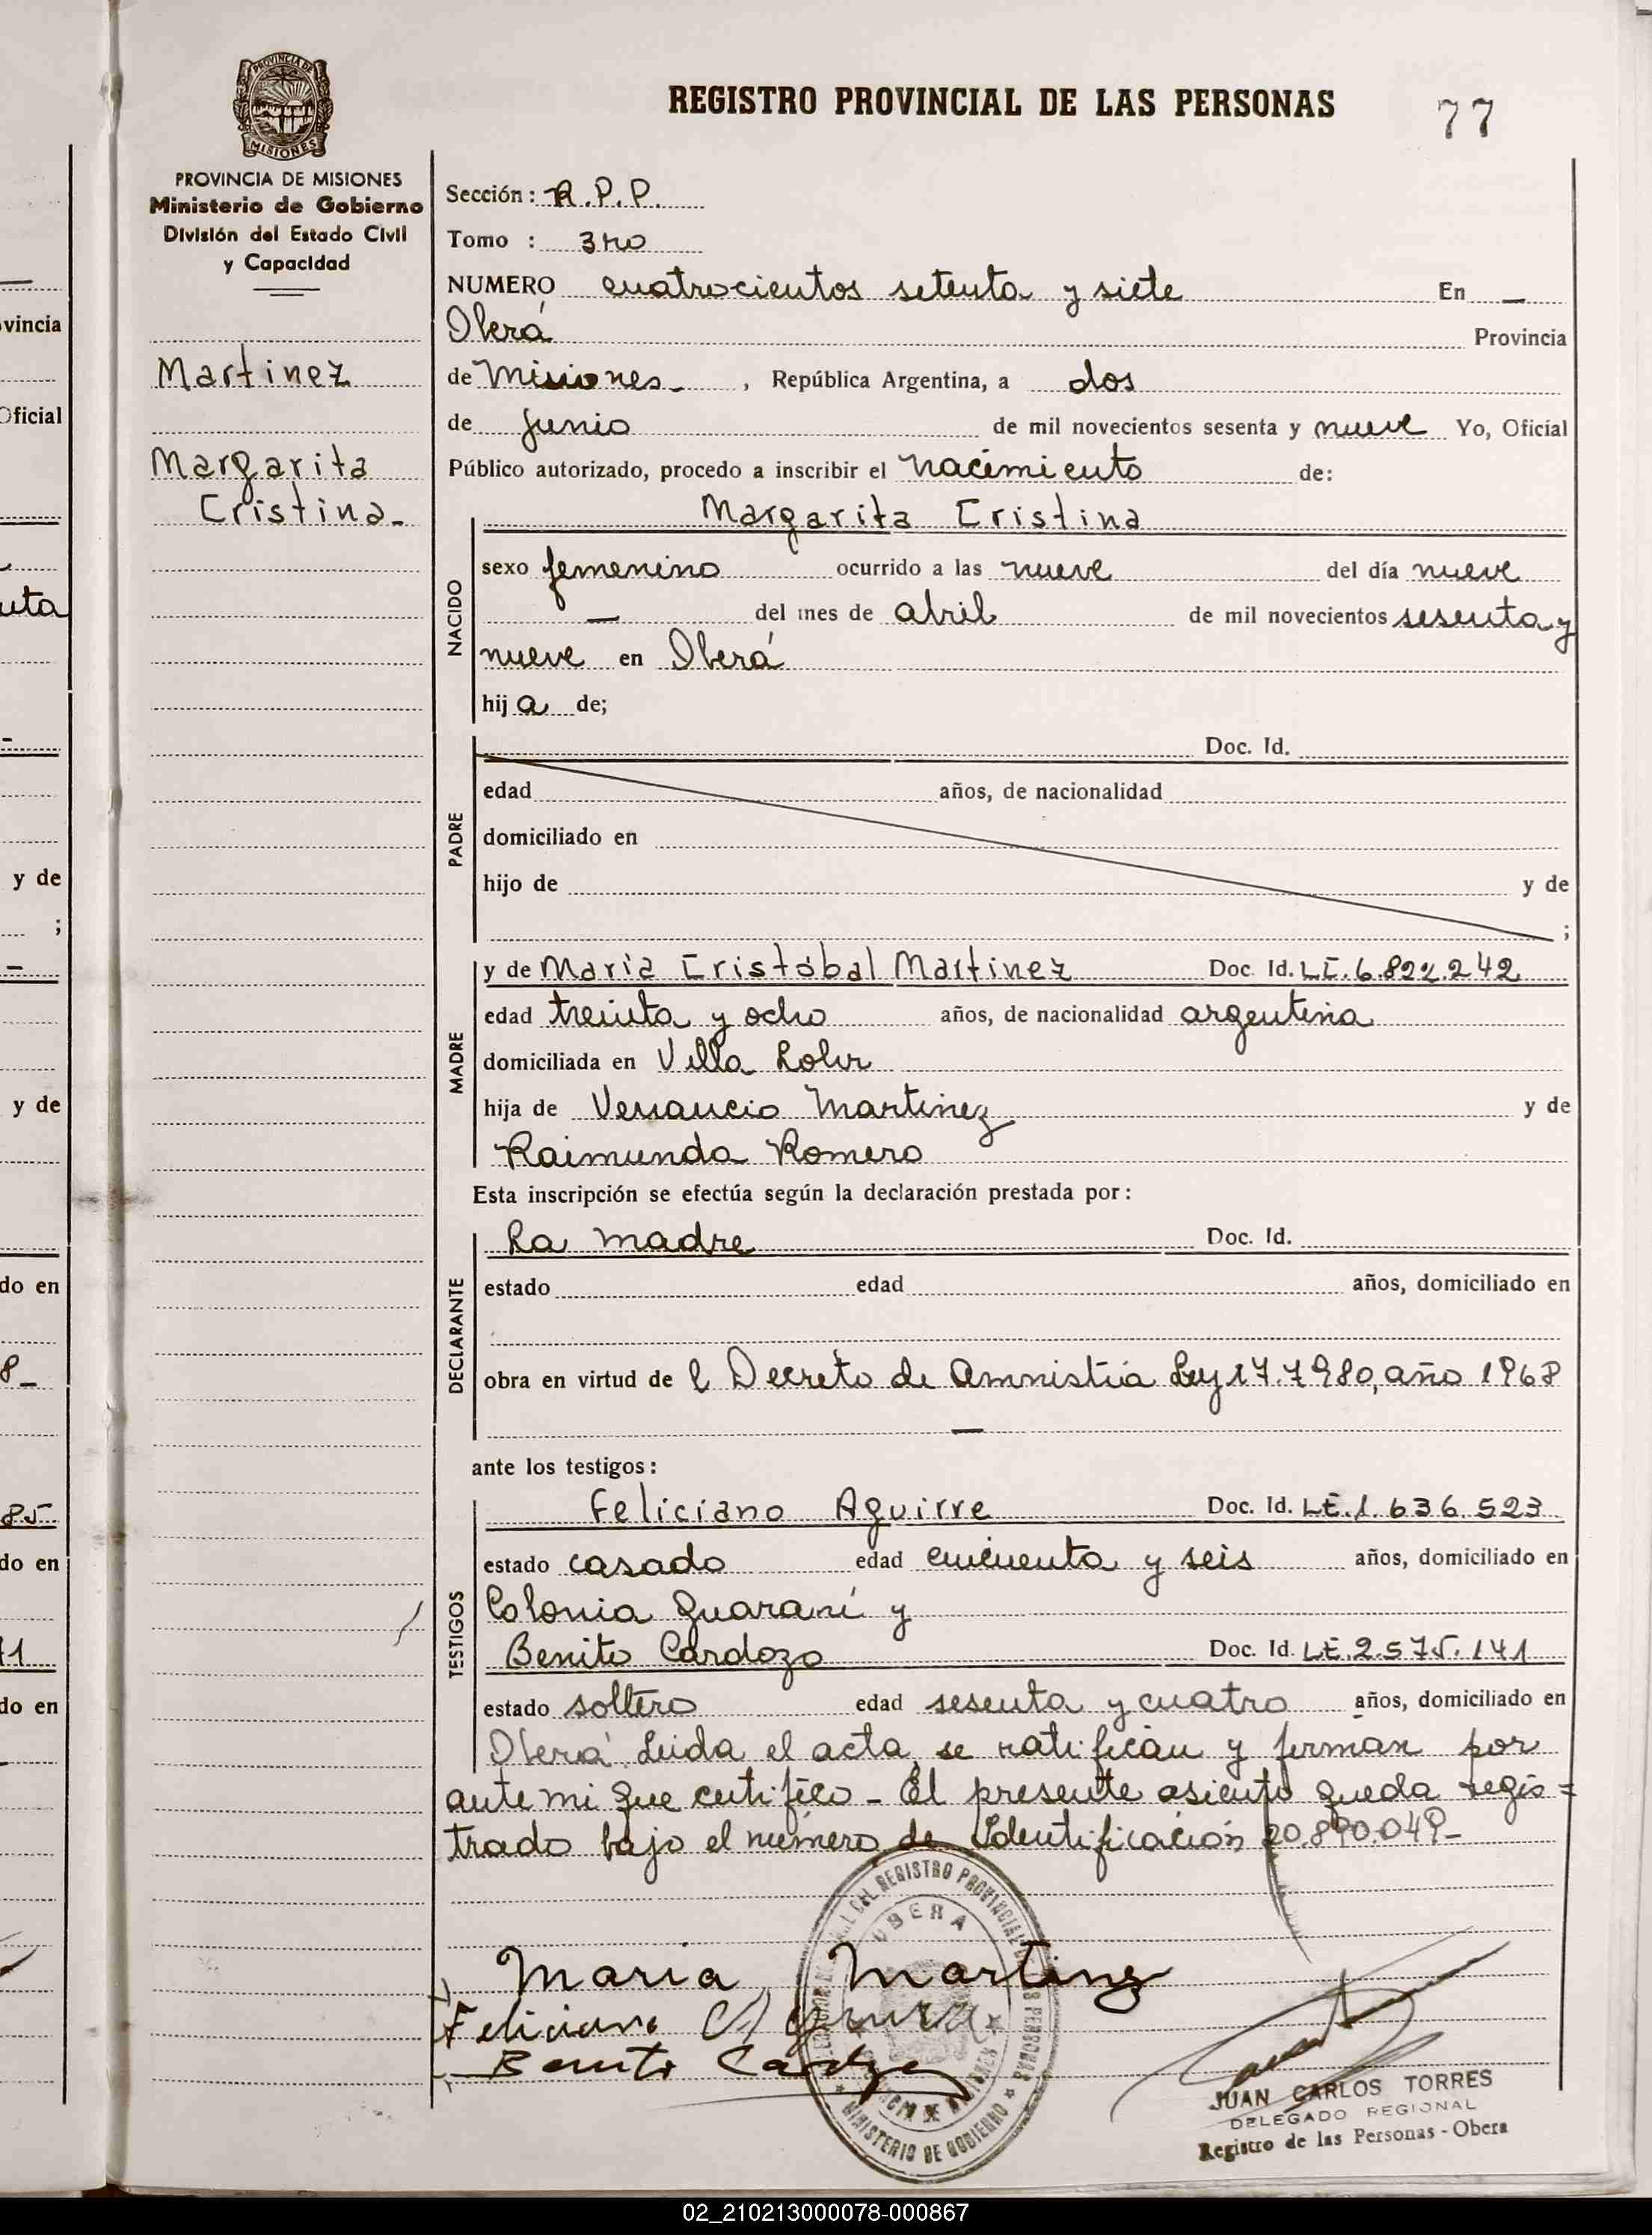 REGISTRO PROVINCIAL DE LAS PERSONAS
77
PROVINCIA DE
MISIONES
PROVINCIA DE MISIONES
Ministerio de Gobierno
División del Estado Civil
y Capacidad
Martinez
Margarita
Cristina-
Sección: R.P.P.
Tomo : 3ro
NUMERO cuatrocientos setenta y siete En —
Oberá Provincia
de Misiones- , República Argentina, a dos
de Junio de mil novecientos sesenta y nueve Yo, Oficial
Público autorizado, procedo a inscribir el nacimiento de:
Margarita Cristina
NACIDO
sexo femenino ocurrido a las nueve del día nueve
— del mes de abril de mil novecientos sesenta y
nueve en Oberá
hij a de;
PADRE
Doc. Id.
edad años, de nacionalidad
domiciliado en
hijo de y de
;
MADRE
y de María Cristóbal Martinez Doc. Id. LC.6.822.242
edad treinta y ocho años, de nacionalidad argentina
domiciliada en Villa Lohr
hija de Venancio Martinez y de
Raimunda Romero
Esta inscripción se efectúa según la declaración prestada por:
DECLARANTE
La madre Doc. Id.
estado edad años, domiciliado en
obra en virtud de l Decreto de Amnistía Ley 17.7980, año 1968
—
ante los testigos:
TESTIGOS
Feliciano Aguirre Doc. Id. LE.1.636.523
estado casado edad cincuenta y seis años, domiciliado en
Colonia Guaraní y
Benito Cardozo Doc. Id. LE.2.575.141
estado soltero edad sesenta y cuatro años, domiciliado en
Oberá Leida el acta, se ratifican y firman por
ante mi que certifico - El presente asiento queda regis=
trado bajo el número de Identificación 20.890.049-
REGISTRO PROVINCIAL DE LAS PERSONAS
OBERA
MINISTERIO DE GOBIERNO
Maria Martinez
Feliciano Aguirre
Benito Cardozo
JUAN CARLOS TORRES
DELEGADO REGIONAL
Registro de las Personas - Obera
vincia
Oficial
y de
;
y de
do en
do en
do en
02_210213000078-000867